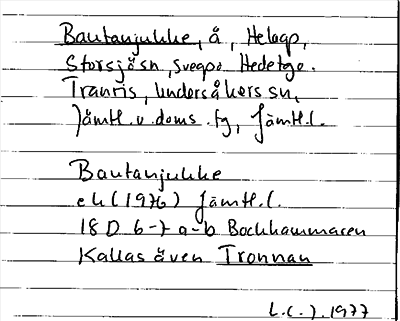 Bautanjukke, å, Helagp,
Storsjösn, Sveqpo Hedetgo.
Tranris, Undersåkers sn,
Jämtl. v. doms. fg, Jämtl. l.
Bautanjukke
ek (1976) Jämtl. l.
18 D 6-7 a-b Bockhammaren
Kallas även Tronnan
L.C.J. 1977